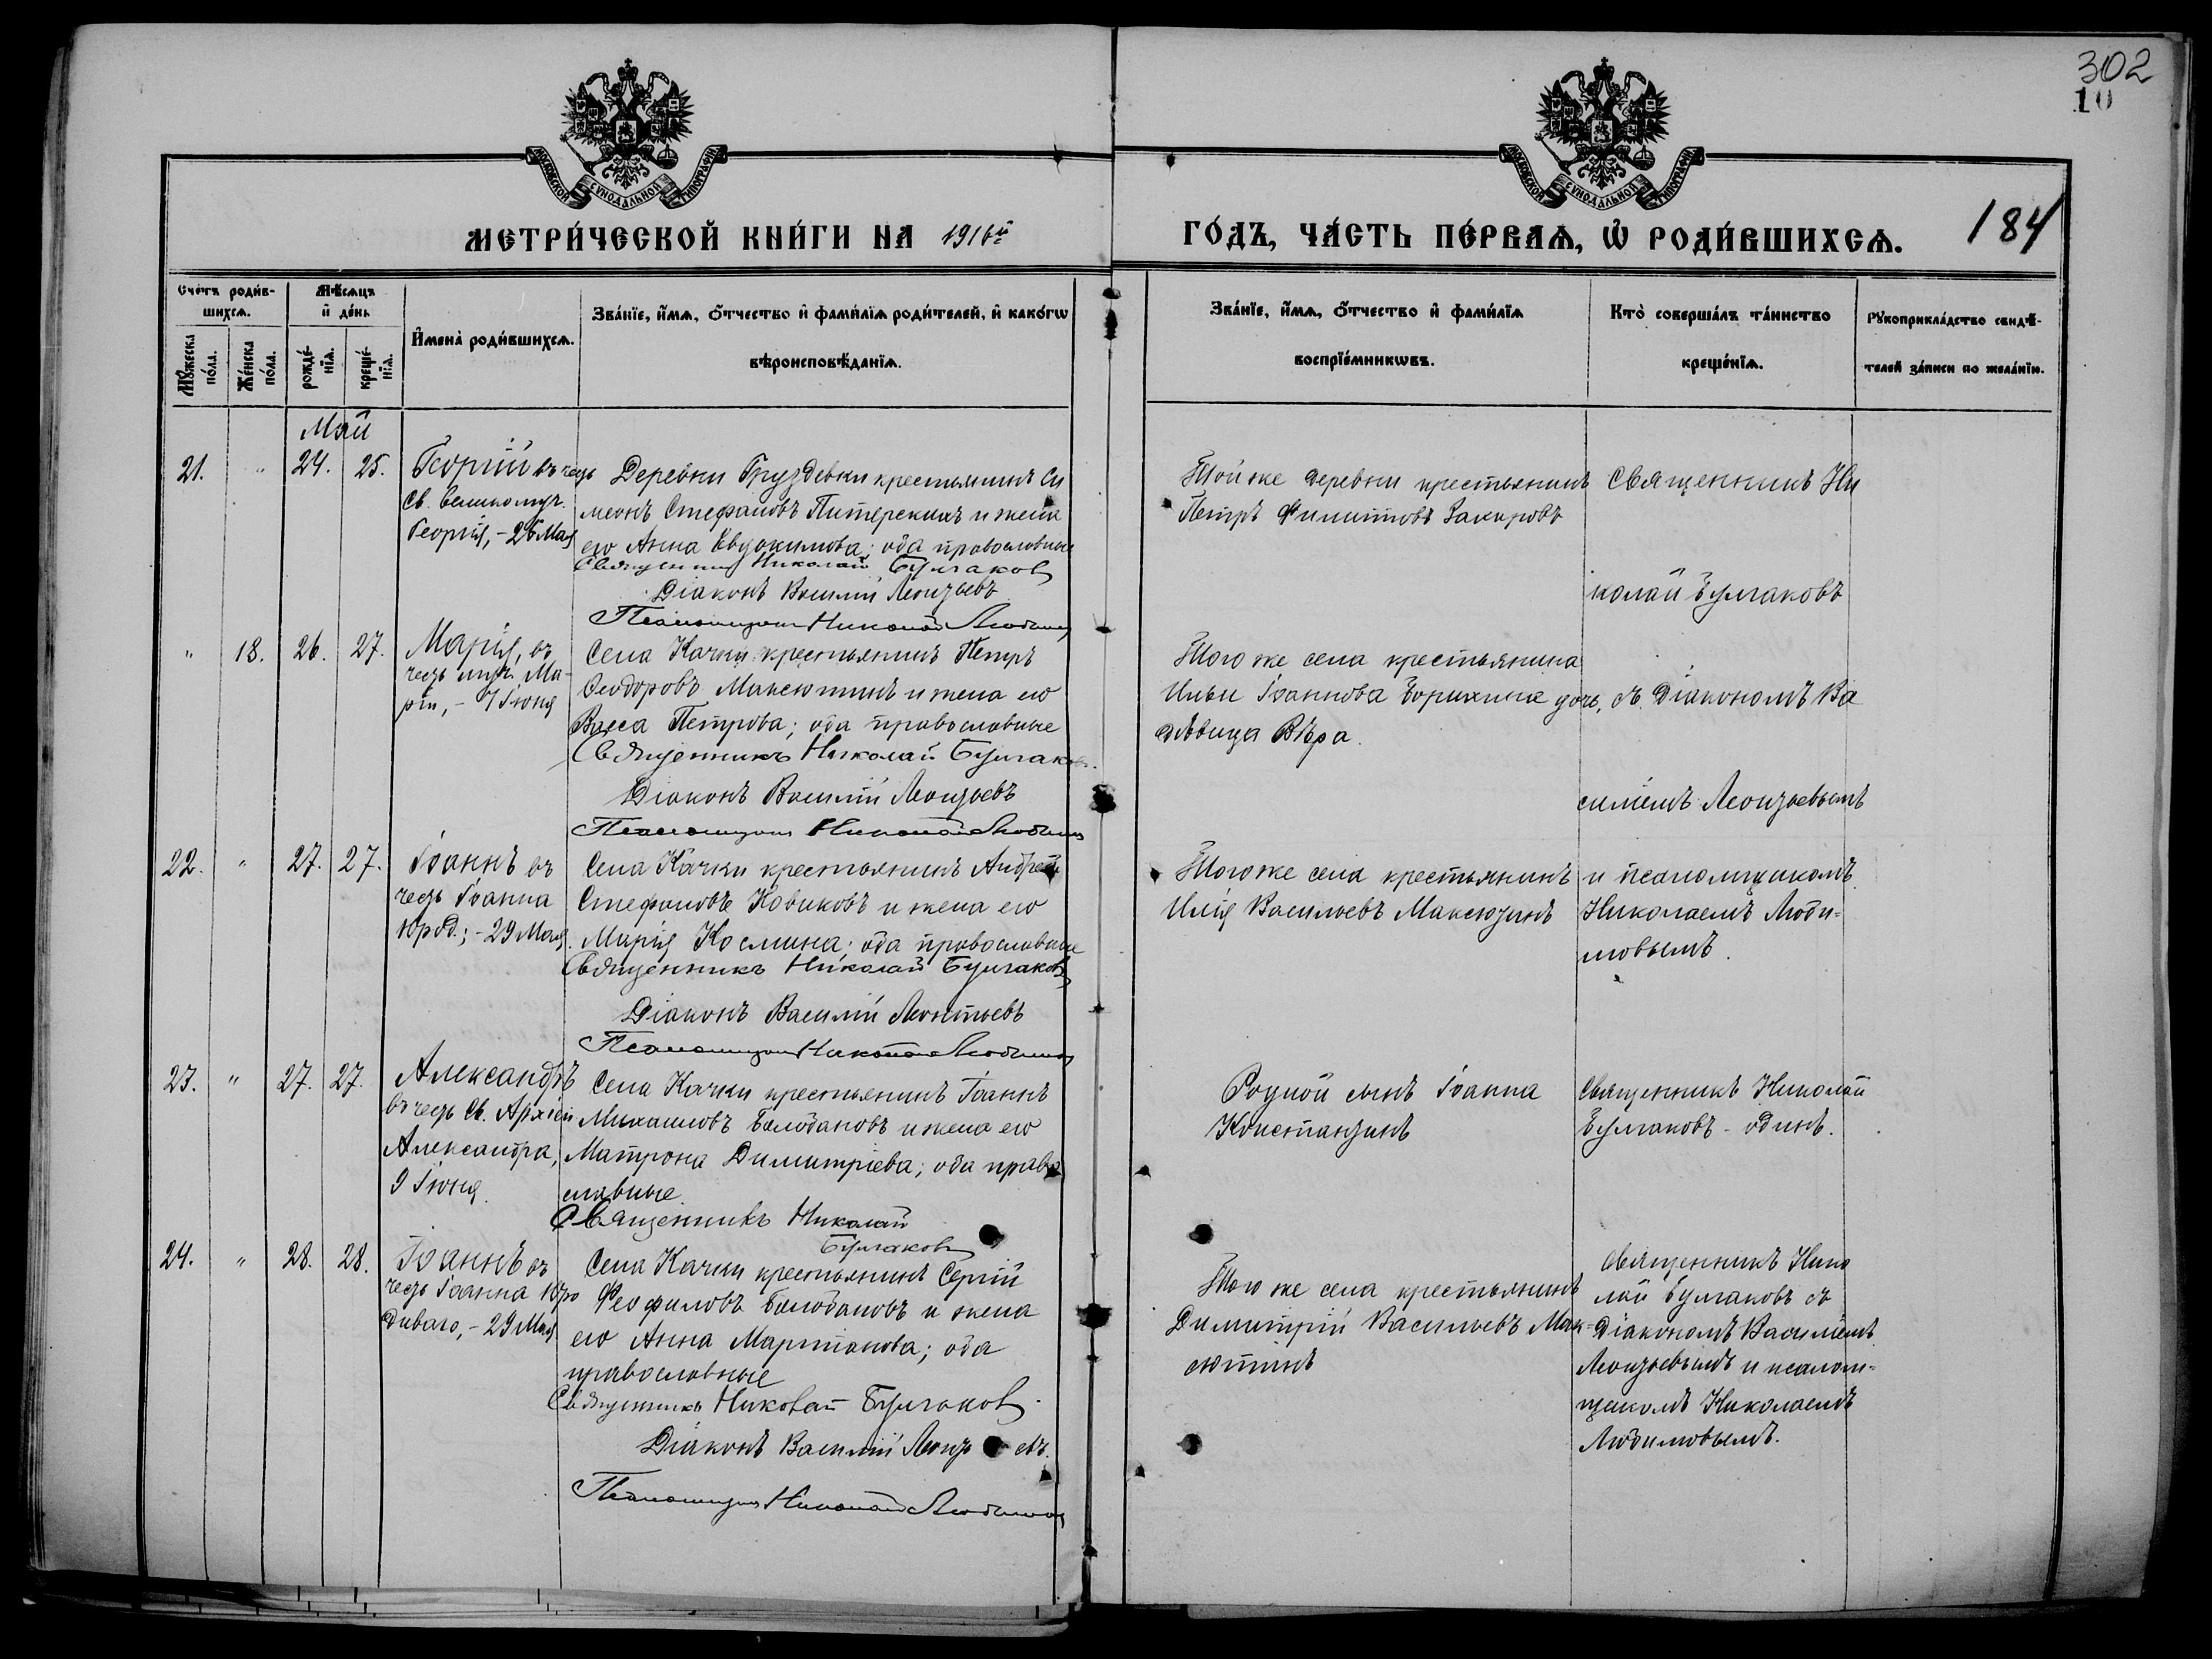 302
10
МОСКОВСКОЙ СѴНОДАЛЬНОЙ ТИПОГРАФІИ
МОСКОВСКОЙ СѴНОДАЛЬНОЙ ТИПОГРАФІИ
МЕТРИ́ЧЕСКОЙ КНИ́ГИ НА 1916й
ГО́ДЪ, ЧА́СТЬ ПЕ́РВАѦ, Ѡ҆ РОДИ́ВШИХСѦ.
184
Сче́тъ роди́в-
шихсѧ.
Мꙋ́жеска по́ла.
Же́нска по́ла.
Мѣ́сѧцъ
и҆ де́нь
рожде́-
нїѧ.
креще́-
нїѧ.
И҆мена̀ роди́вшихсѧ.
Зва́нїе, и҆́мѧ, ѻ҆́тчество и҆ фами́лїѧ роди́телей, и҆ како́гѡ
вѣроисповѣ́данїѧ.
Зва́нїе, и҆́мѧ, ѻ҆́тчество и҆ фами́лїѧ
воспрїе́мникѡвъ.
Кто̀ соверша́лъ та́инство
креще́нїѧ.
Рꙋкоприкла́дство свидѣ́-
телей за́писи по жела́нїю.
Май
21. " 24. 25.
Георгій въ честь
Св. Великомуч.
Георгія, - 26 Мая
Деревни Груздевки крестьянинъ Си
меонъ Стефановъ Питерскихъ и жена
его Анна Евдокимова; оба православные
Священникъ Николай Булгаковъ
Діаконъ Василій Леонтьевъ
Псаломщикъ Николай Любимовъ
Той же деревни крестьянинъ
Петръ Филиповъ Захаровъ
Священникъ Ни
колай Булгаковъ
" 18. 26. 27.
Марія, въ
честь муч. Ма-
ріи, - 7 Іюня
Села Качки крестьянинъ Петръ
Ѳеодоровъ Максютинъ и жена его
Васса Петрова; оба православные
Священникъ Николай Булгаковъ.
Діаконъ Василій Леонтьевъ
Псаломщикъ Николай Любимовъ
Того же села крестьянина
Ильи Іоаннова Борихина дочь,
дѣвица Вѣра.
съ Діакономъ Ва
силіемъ Леонтьевымъ
22. " 27. 27.
Іоаннъ въ
честь Іоанна
Юрод.; - 29 Мая.
Села Качки крестьянинъ Андрей
Стефановъ Новиковъ и жена его
Марія Космина; оба православные
Священникъ Николай Булгаковъ
Діаконъ Василій Леонтьевъ
Псаломщикъ Николай Любимовъ
Того же села крестьянинъ
Илія Васильевъ Максютинъ
и псаломщикомъ
Николаемъ Люби-
мовымъ.
23. " 27. 27.
Александръ
въ честь Св. Архіеп
Александра,
9 Іюня.
Села Качки крестьянинъ Іоаннъ
Михаиловъ Балобановъ и жена его
Матрона Димитріева; оба право
славные.
Священникъ Николай
Булгаковъ
Родной сынъ Іоанна
Константинъ
Священникъ Николай
Булгаковъ - одинъ.
24. " 28. 28.
Іоаннъ въ
честь Іоанна Юро
диваго, - 29 Мая.
Села Качки крестьянинъ Сергій
Феофиловъ Балобановъ и жена
его Анна Мартианова; оба
православные
Священникъ Николай Булгаковъ.
Діаконъ Василій Леонтьевъ.
Псаломщикъ Николай Любимовъ
Того же села крестьянинъ
Димитрій Васильевъ Мак-
сютинъ
Священникъ Нико
лай Булгаковъ съ
Діакономъ Василіемъ
Леонтьевымъ и псалом-
щикомъ Николаемъ
Любимовымъ.